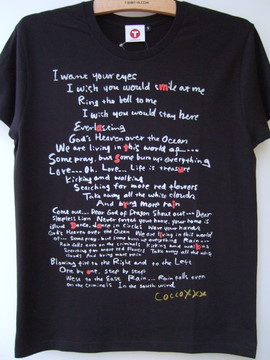 T
I want your eyes
I wish you would smile at me
Ring the bell to me
I wish you would stay here
Everlasting
God's Heaven over the Ocean
We are living in this world of....
Some pray, but some burn up everything
Love... Oh, Love... Life is treasure
Kicking and walking
Searching for more red flowers
Take away all the white clouds
And bring more rain
Come out... Dear God of Dragon Shout out... Dear
Shameless Lion Never forget your home, your home is
island Dance, dance in Circles Wave your hands
God's Heaven over the Ocean We are living in this world
of... Some pray, but some burn up everything Rain...
Rain falls over on the criminals Kicking and walking
Searching for more red flowers Take away all the white
clouds And bring more rain
Blowing first to the Right and to the Left
One by one, step by step
West to the East Rain... Rain falls over
on the criminals In the south wind
Coccoxxx